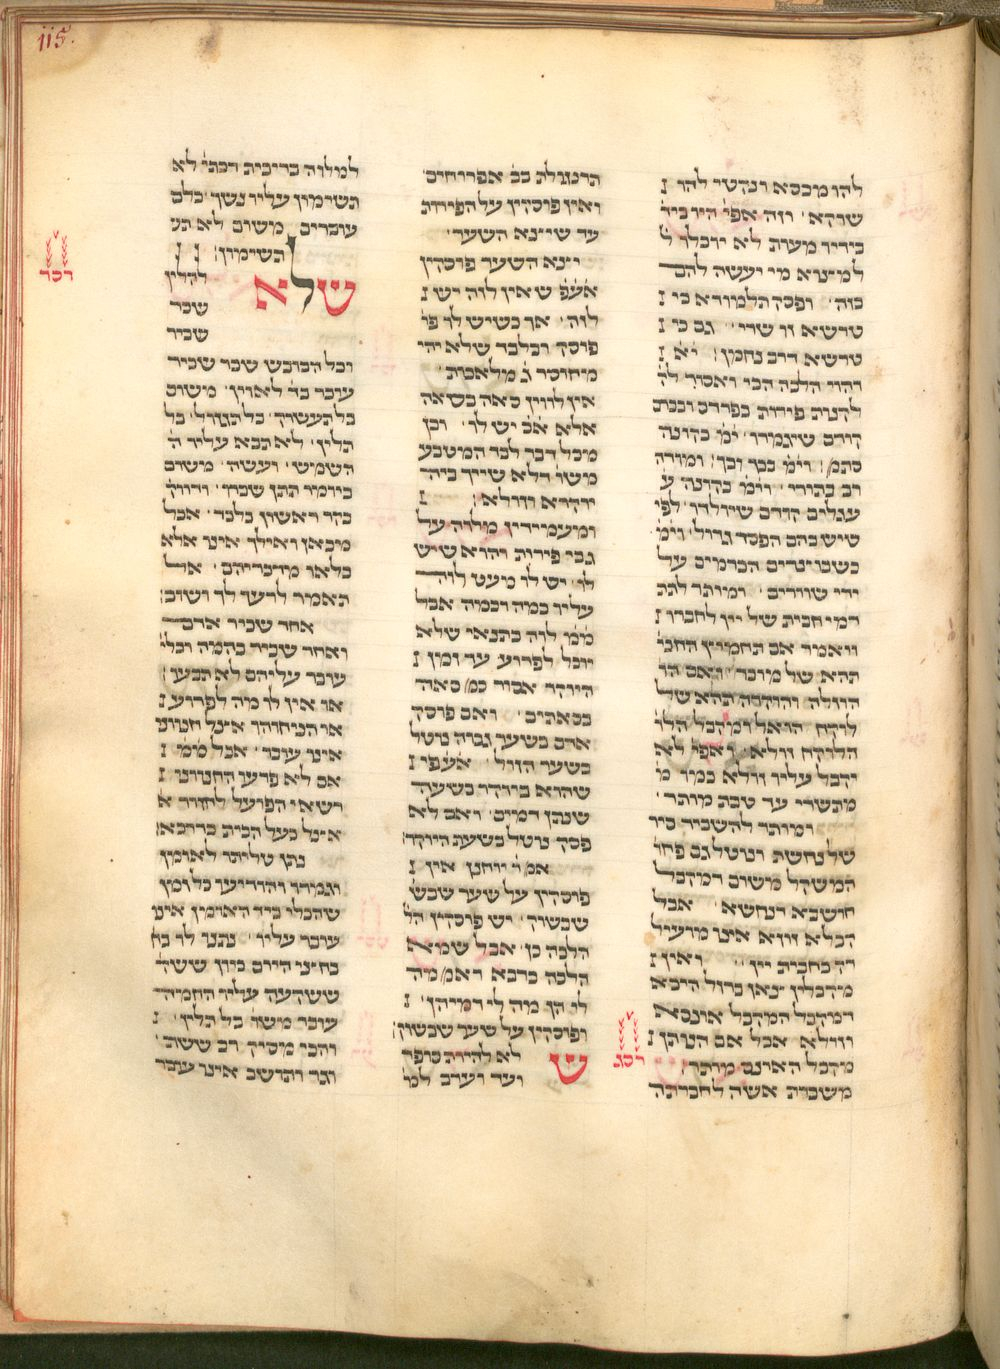 115.
להו מכסא ונקטי להו
שוקא׳ וזה אפי׳ היו ביד
בידיו מעות לא יוכלו ל
למצוא מי יעשה להם
כזה׳ ופסק תלמודא כי
טרשא זו שרי׳ גם כי
טרשא דרב נחמן׳
והוי הלכה הכי ואסור לה
להנות פירות בפרדס ובכרם
קודם שיגמרו׳ ימ׳ בקונה
סתם׳ וימ׳ בכך וכך׳ ומודה
רב בתורי׳ וימ׳ בקונה ע
עגלים קודם שיולדו׳ לפי
שיש בהם הפסד גדול׳ וימ׳
כשכוצרים הכרמים על
ידי שוורים׳ ומותר לתת
דמי חבית של יין לחברו
ולאמר אם תחמיץ החבי
תהא של מוכר׳ ואם הו
הוזלה והוקרה תהא של
לוקח הואל ומקבל הלו
הלוקח זולא׳ אפי׳ לא
יקבל עליו זולא כמו מ
מתשרי עד טבת מותר׳
ומותר להשכיר סיר
של נחשת ונוטל גם פחת
המשקל משום דמקבל
חושבא דנחשא׳ אבל
הכלא זוזא אינו מועיל
רק בחבית יין׳ ואין
מקבלין צאן ברזל היכא
דמקבל המקבל אונסא
וזולא אבל אם הנותן
מקבל האונס מותר׳
משכרת אשה לחברתה
תרנגולת בב׳ אפרוחים׳
ואין פוסקין על הפירות
עד שיצא השער׳
יצא השער פוסקין
אעפ׳ שאין לזה יש
לזה׳ אך כשיש לו פו
פוסק ובלבד שלא יהי
מיחוסר ג׳ מלאכות׳
אין לווין סאה בסאה
אלא אב׳ יש לו׳ וכן
מכל דבר לבד המטבע
משו׳ דלא שייך ביה
יוקרא וזולא׳
ומעמידין מלוה על
גבי פירות והוא שיש
לו׳ יש לו מעט לוה
עליו כמה וכמה אבל
ממ׳ לוה בתנאי שלא
יוכל לפרוע עד זמן
היוקר׳ אסור כמ׳ סאה
בסאתים׳ ואם פוסק
אדם כשער גבוה נוטל
כשער הזול׳ אעפי
שהוא ביוקר כשעה
שנתן דמים׳ ואם לא
פסק נוטל כשעת היוקר׳
אמ׳ר יוחנן אין
פוסקין על שער שבש
שבשוק׳ יש פוסקין הל
הלכה כן׳ אבל שמיא
הלכה כרבא דאמ׳ מה
לי הן מה לי דמיהן׳
ופוסקין על שער שבשוק׳
ש לא להיות סופר
ועד וערב למ׳
רסג
למלוה בריבית דכתי׳ לא
תשימון עליו נשך׳ כלם
עוברים משום לא תש
תשימון׳
שלא
להלין
שכר
שכיר
רסד
וכל הכובש שכר שכיר
עובר בד׳ לאוין׳ משום
בל תעשוק׳ בל תגזול׳ בל
תלין׳ לא תבא עליו ה
השמש׳ ועשה׳ משום
ביומו תתן שכרו׳ ודווק׳
בקר ראשון בלבד׳ אבל
מכאן ואילך אינו אלא
בלאו מדבריהם׳ אל
תאמר לרעך לך ושוב׳
אחד שכיר אדם
ואחד שכיר בהמה וכלי׳
עובר עליהם לא תבעו׳
או אין לו מה לפרוע
או הניחוהו אצל חנוני
אינו עובר׳ אבל ממ׳
אם לא פרעו החנווני
רשאי הפועל לחזור א
אצל בעל הבית כרבא׳
נתן טליתו לאומן
וגמרו והודיעו כל זמן
שהכלי ביד האומן אינו
עובר עליו׳ נתנו לו בח
בחצי היום כיון ששק׳
ששקעה עליו החמה
עובר משו׳ בל תלין׳
והכי מסיק רב ששת׳
וגר ותושב אינו עובר